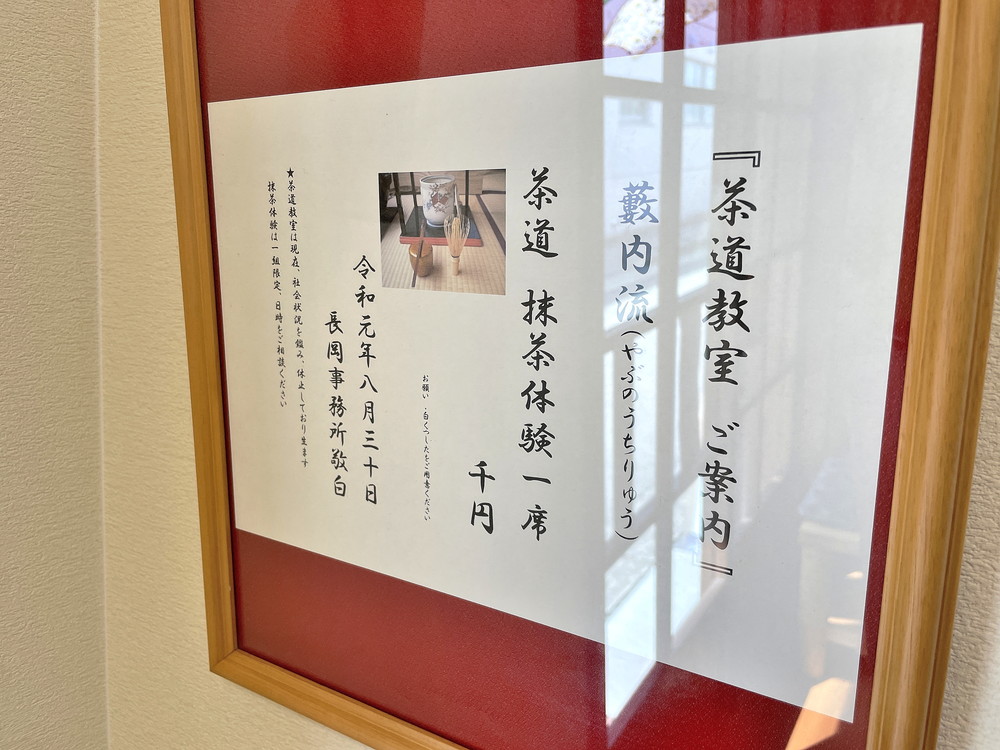 『茶道教室　ご案内』
藪内流（やぶのうちりゅう）
茶道　抹茶体験一席
千円
お願い　・白くつしたをご用意ください
令和元年八月三十日
長岡事務所敬白
★茶道教室は現在、社会状況を鑑み、休止しております
抹茶体験は一組限定、日時をご相談ください